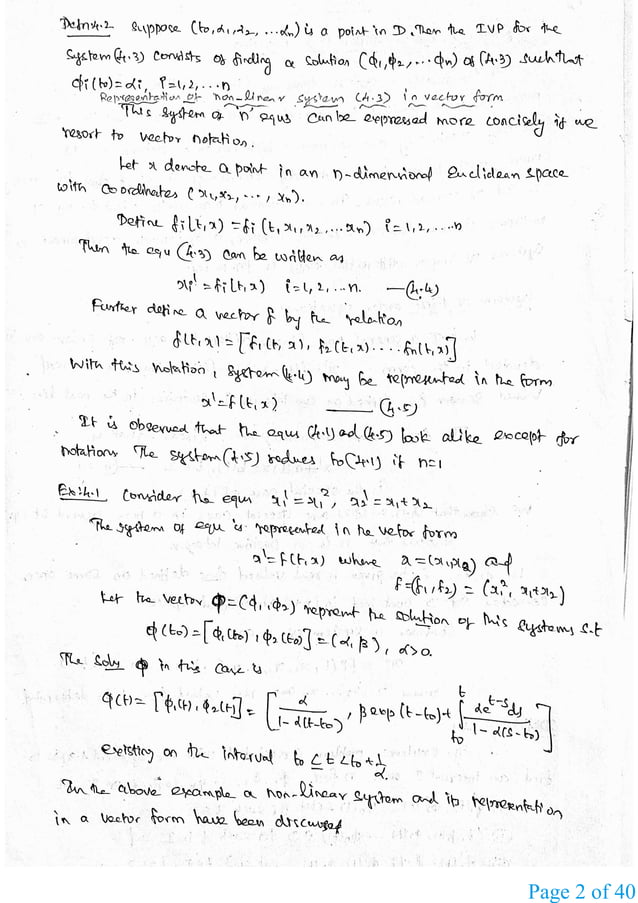 Defn4.2 Suppose (t0, α1, α2, ...αn) is a point in D. Then the IVP for the
System (4.3) consists of finding a solution (ϕ1, ϕ2, ... ϕn) of (4.3) such that
ϕi(t0)=αi, i=1,2,...n
Representation of non-linear system (4.3) in vector form
This system of 'n' equns can be expressed more concisely if we
resort to vector notation.
Let x denote a point in an n-dimensional Euclidean space
with coordinates (x1, x2, ..., xn).
Define fi(t,x) = fi(t, x1, x2, ...xn) i=1,2,...n
Then the equ (4.3) can be written as
xi' = fi(t,x) i=1,2,...n. —(4.4)
Further define a vector f by the relation
f(t,x) = [f1(t,x), f2(t,x)....fn(t,x)]
With this notation, system (4.4) may be represented in the form
x' = f(t,x) —— (4.5)
It is observed that the equs (4.1) ad (4.5) look alike except for
notations The system (4.5) reduces to (4.1) if n=1
Ex:4.1 Consider the equn x1' = x1², x2' = x1+x2
The system of equ is represented in the vetor form
x' = f(t,x) where x=(x1,x2) and
f=(f1,f2) = (x1², x1+x2)
Let the vector ϕ=(ϕ1,ϕ2) reprent the solution of this systems s.t
ϕ(t0) = [ϕ1(t0), ϕ2(t0)] = (α,β), α>0.
The soln ϕ in this case is
ϕ(t) = [ϕ1(t), ϕ2(t)] = [α/(1-α(t-t0)), β exp(t-t0) + ∫_{t0}^{t} αe^{t-s}ds/(1-α(s-t0))]
existing on the interval t0 ≤ t < t0 + 1/α.
In the above example a non-linear system and its representation
in a vector form have been discussed
Page 2 of 40